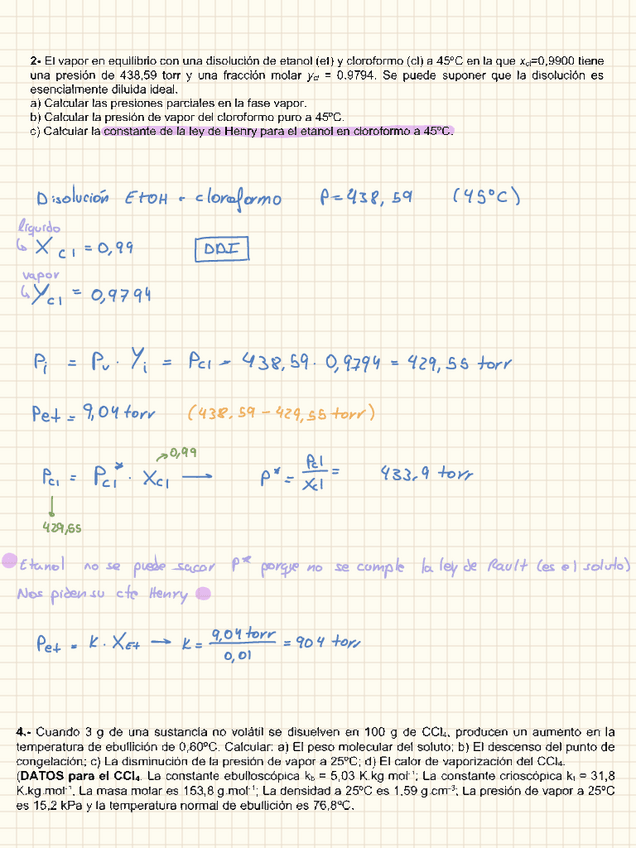 2- El vapor en equilibrio con una disolución de etanol (et) y cloroformo (cl) a 45ºC en la que xcl=0,9900 tiene
una presión de 438,59 torr y una fracción molar ycl = 0.9794. Se puede suponer que la disolución es
esencialmente diluida ideal.
a) Calcular las presiones parciales en la fase vapor.
b) Calcular la presión de vapor del cloroformo puro a 45ºC.
c) Calcular la constante de la ley de Henry para el etanol en cloroformo a 45ºC.
Disolución EtOH - cloroformo P=438,59 (45ºC)
líquido
↳ X cl = 0,99 DDI
vapor
↳ Ycl = 0,9794
Pi = Pv · Yi = Pcl - 438,59 · 0,9794 = 429,55 torr
Pet = 9,04 torr (438,59 - 429,55 torr)
↗ 0,99
Pcl = Pcl* · Xcl → P* = Pcl/Xcl = 433,9 torr
↓
429,55
Etanol no se puede sacar P* porque no se cumple la ley de Rault (es el soluto)
Nos piden su cte Henry
Pet = K · XEt → K = 9,04 torr / 0,01 = 904 torr
4.- Cuando 3 g de una sustancia no volátil se disuelven en 100 g de CCl₄, producen un aumento en la
temperatura de ebullición de 0,60ºC. Calcular: a) El peso molecular del soluto; b) El descenso del punto de
congelación; c) La disminución de la presión de vapor a 25ºC; d) El calor de vaporización del CCl₄.
(DATOS para el CCl₄. La constante ebulloscópica kb = 5,03 K.kg mol⁻¹; La constante crioscópica kf = 31,8
K.kg.mol⁻¹, La masa molar es 153,8 g.mol⁻¹; La densidad a 25ºC es 1,59 g.cm⁻³; La presión de vapor a 25ºC
es 15,2 kPa y la temperatura normal de ebullición es 76,8ºC.